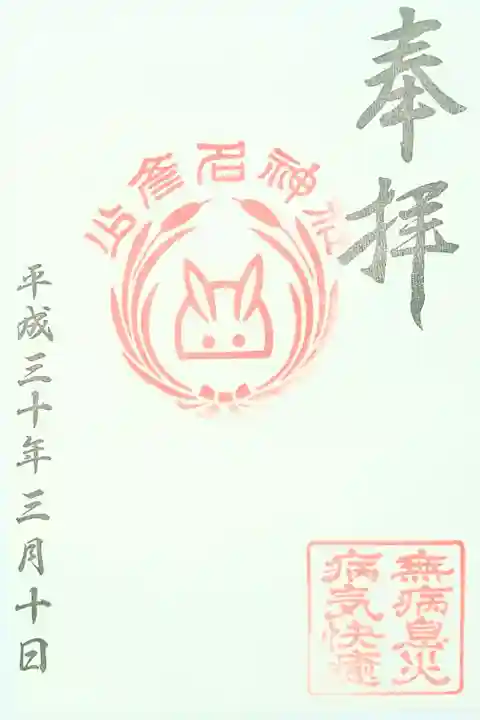 奉拝
少彦名神社
無病息災
病気快癒
平成三十年三月十日